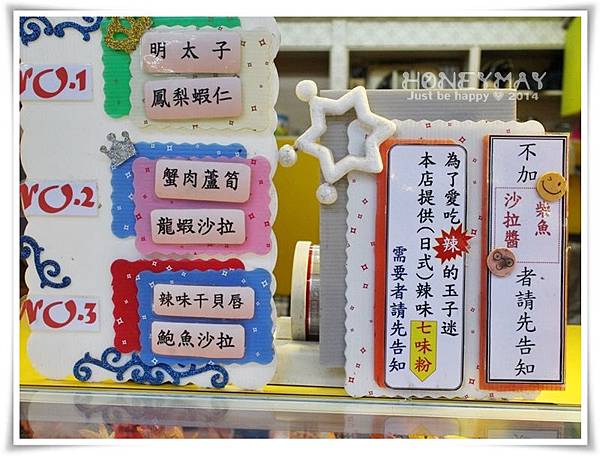 HONEYMAY
Just be happy ♥ 2014
NO.1
明太子
鳳梨蝦仁
NO.2
蟹肉蘆筍
龍蝦沙拉
NO.3
辣味干貝唇
鮑魚沙拉
為了愛吃辣的玉子迷
本店提供(日式)辣味七味粉
需要者請先告知
不加
柴魚
沙拉醬
者請先告知